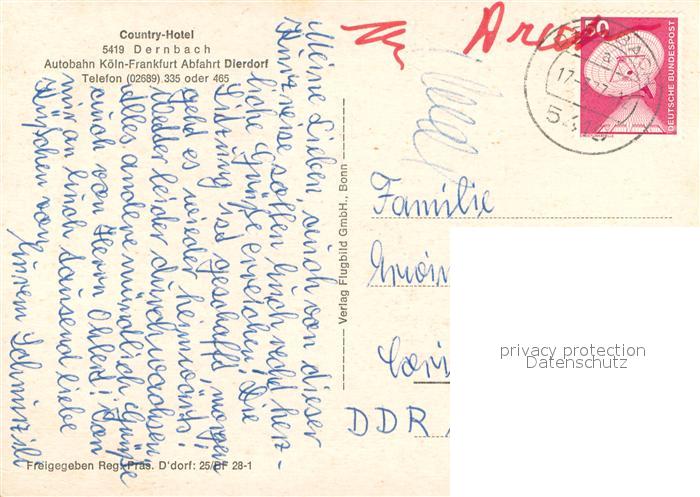 Country-Hotel
5419 Dernbach
Autobahn Köln-Frankfurt Abfahrt Dierdorf
Telefon (02689) 335 oder 465
Meine Lieben, auch von dieser
Kurzreise sollen Euch recht herz-
liche Grüße erreichen! Die
Sitzung ist geschafft, morgen
geht es wieder heimwärts!
Wetter leider durchwachsen,
alles andere mündlich. Grüße
auch von Herrn Ohlert! Von
mir an Euch tausend liebe
Küßchen von
Eurem
Verlag Flugbild GmbH., Bonn
Freigegeben Reg. Präs. D'dorf: 25/BF 28-1
50
DEUTSCHE BUNDESPOST
17.
541
Familie
DDR
privacy protection
Datenschutz